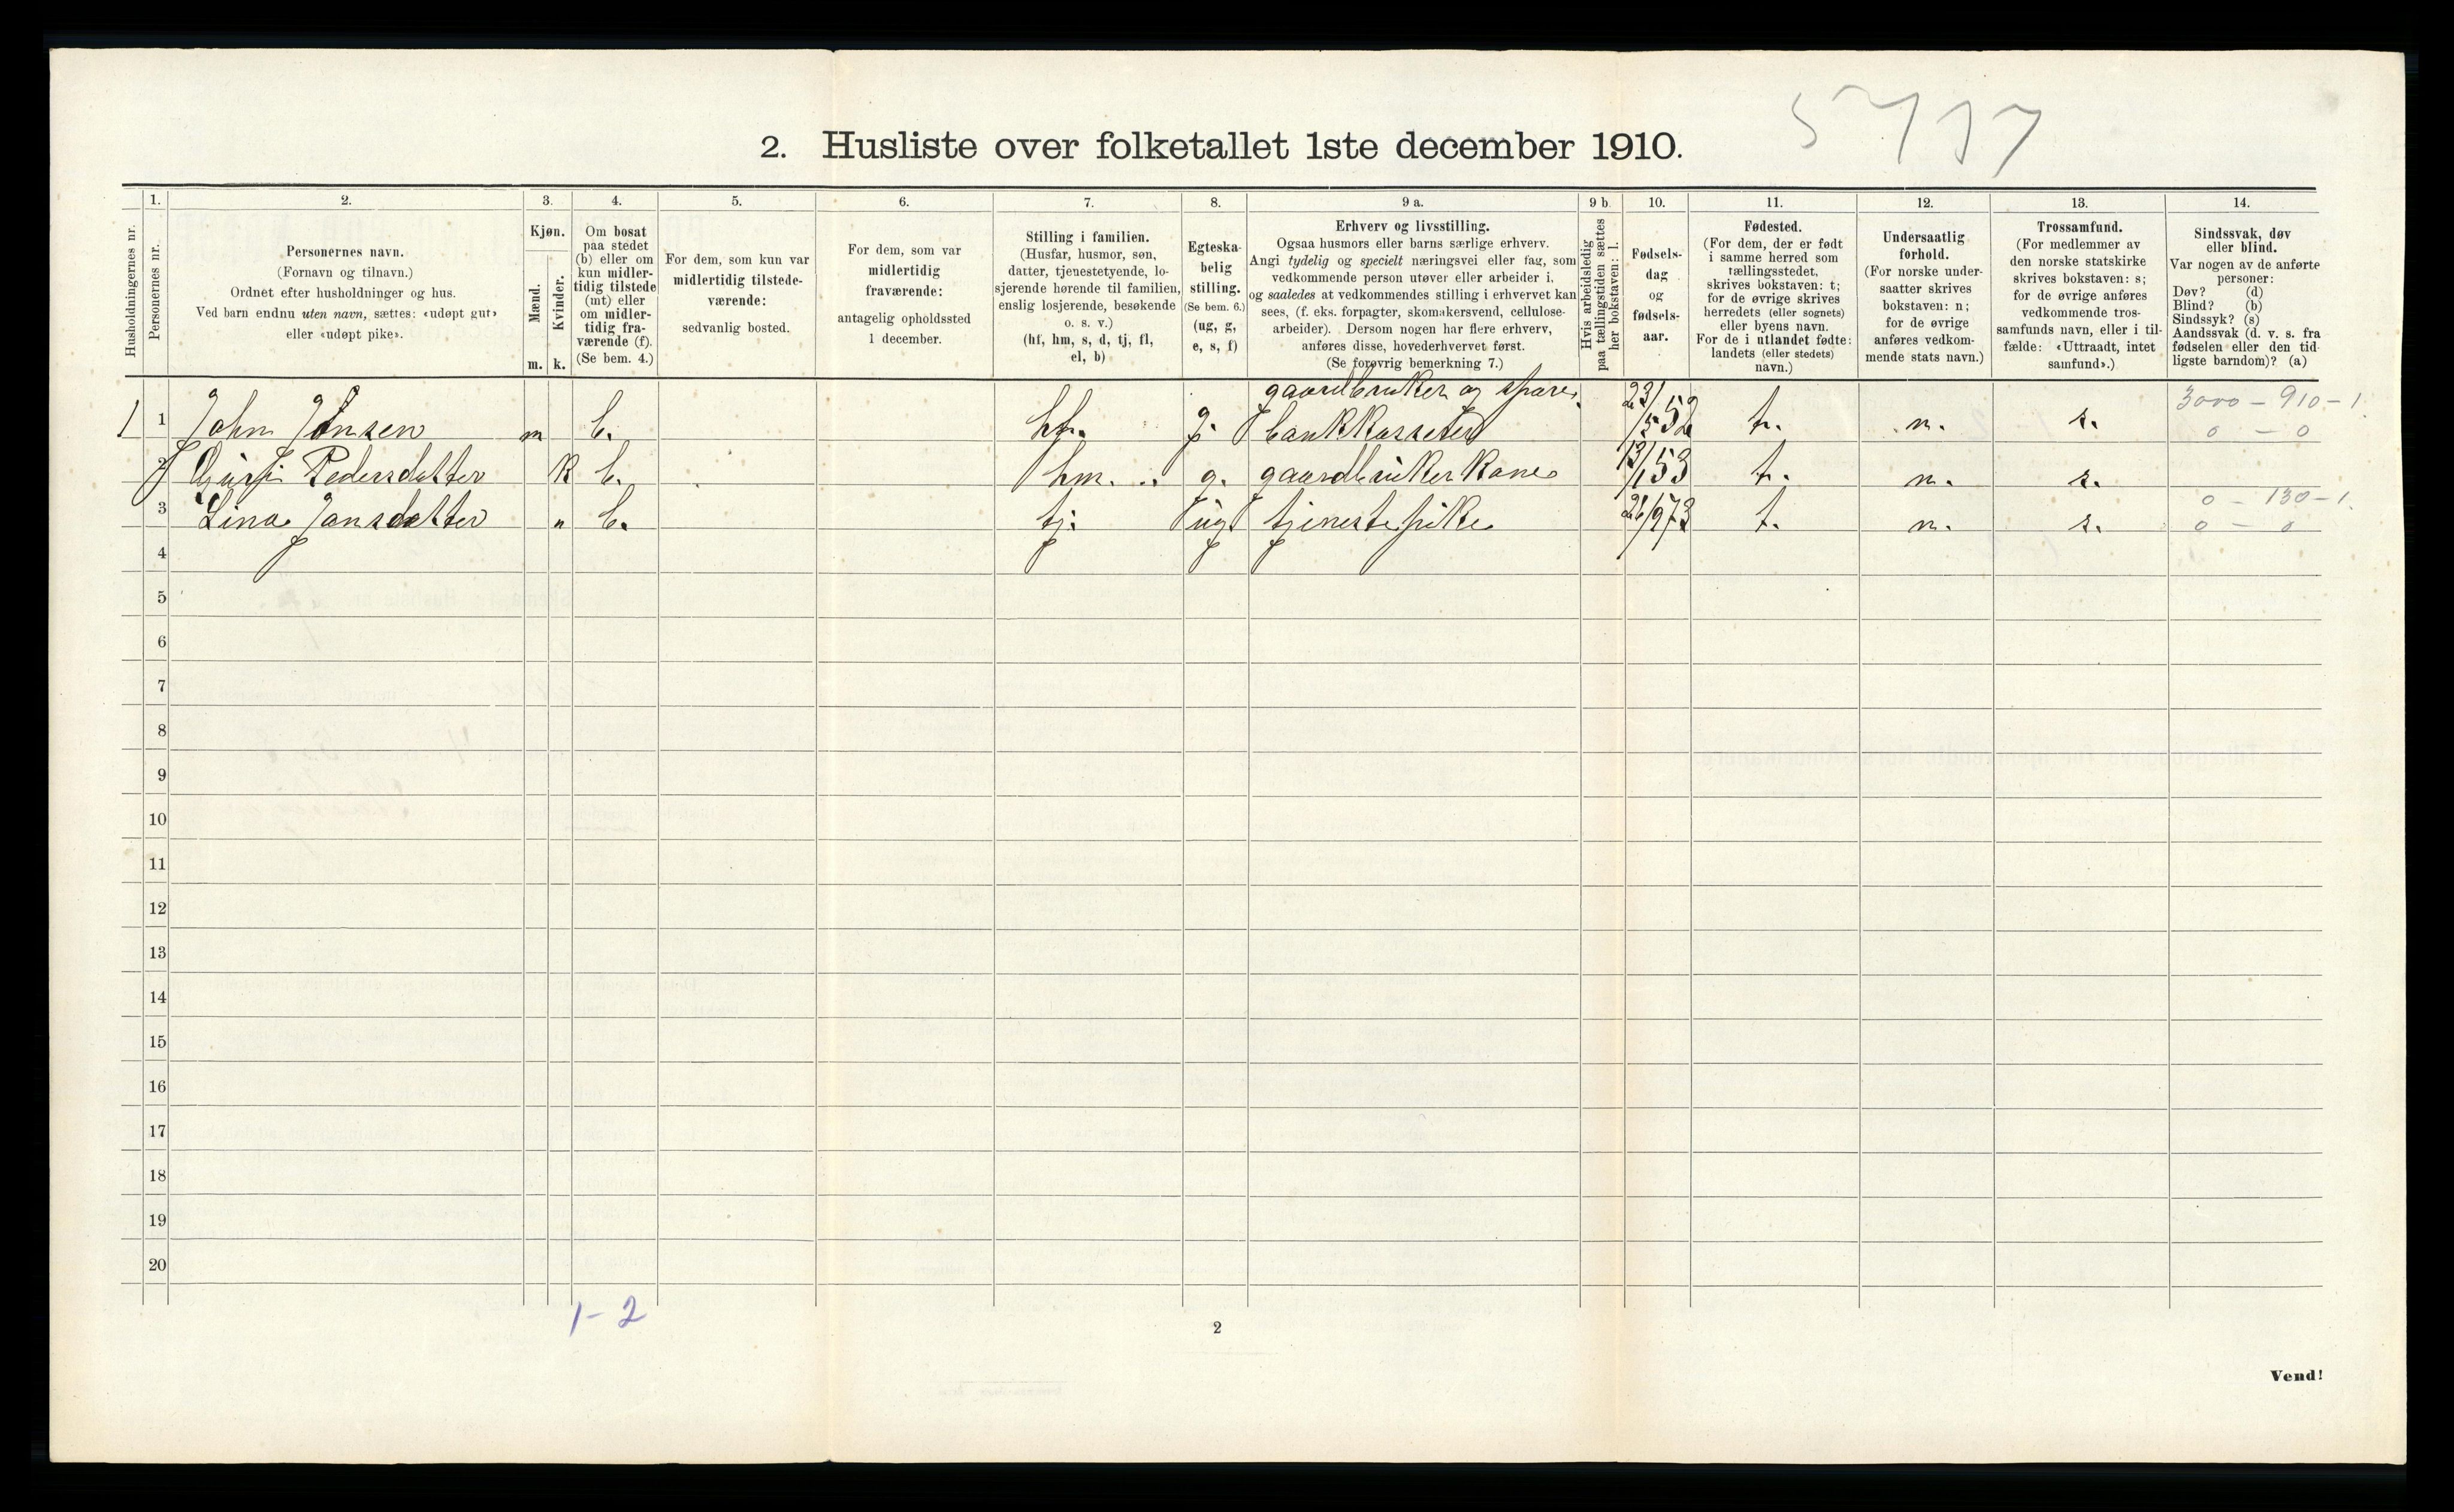 2. Husliste over folketallet 1ste december 1910.
Husholdningernes nr.
1.
Personernes nr.
2.
Personernes navn.
(Fornavn og tilnavn.)
Ordnet efter husholdninger og hus.
Ved barn endnu uten navn, sættes: «udøpt gut»
eller «udøpt pike».
3.
Kjøn.
Mænd.
Kvinder.
m. k.
4.
Om bosat
paa stedet
(b) eller om
kun midler-
tidig tilstede
(mt) eller
om midler-
tidig fra-
værende (f).
(Se bem. 4.)
5.
For dem, som kun var
midlertidig tilstede-
værende:
sedvanlig bosted.
6.
For dem, som var
midlertidig
fraværende:
antagelig opholdssted
1 december.
7.
Stilling i familien.
(Husfar, husmor, søn,
datter, tjenestetyende, lo-
sjerende hørende til familien,
enslig losjerende, besøkende
o. s. v.)
(hf, hm, s, d, tj, fl,
el, b)
8.
Egteska-
belig
stilling.
(Se bem. 6.)
(ug, g,
e, s, f)
9 a.
Erhverv og livsstilling.
Ogsaa husmors eller barns særlige erhverv.
Angi tydelig og specielt næringsvei eller fag, som
vedkommende person utøver eller arbeider i,
og saaledes at vedkommendes stilling i erhvervet kan
sees, (f. eks. forpagter, skomakersvend, cellulose-
arbeider). Dersom nogen har flere erhverv,
anføres disse, hovederhvervet først.
(Se forøvrig bemerkning 7.)
9 b.
Hvis arbeidsledig
paa tællingstiden sættes
her bokstaven: l.
10.
Fødsels-
dag
og
fødsels-
aar.
11.
Fødested.
(For dem, der er født
i samme herred som
tællingsstedet,
skrives bokstaven: t;
for de øvrige skrives
herredets (eller sognets)
eller byens navn.
For de i utlandet fødte:
landets (eller stedets)
navn.)
12.
Undersaatlig
forhold.
(For norske under-
saatter skrives
bokstaven: n;
for de øvrige
anføres vedkom-
mende stats navn.)
13.
Trossamfund.
(For medlemmer av
den norske statskirke
skrives bokstaven: s;
for de øvrige anføres
vedkommende tros-
samfunds navn, eller i til-
fælde: «Uttraadt, intet
samfund».)
14.
Sindssvak, døv
eller blind.
Var nogen av de anførte
personer:
Døv? (d)
Blind? (b)
Sindssyk? (s)
Aandssvak (d. v. s. fra
fødselen eller den tid-
ligste barndom)? (a)
gaardbruker og spare- 3000 - 910 - 1.
1 1 John Jonsen m b. hf. g. bankkasserer t. n. s. 0 - 0
2 Pedersdatter k b. hm. g. gaardbrukerkone t. n. s.
0 - 130 - 1.
3 Lina Jansdatter " b. tj. ug. tjenestepike t. n. s. 0 - 0
4
5
6
7
8
9
10
11
12
13
14
15
16
17
18
19
20
1 - 2
2
Vend!